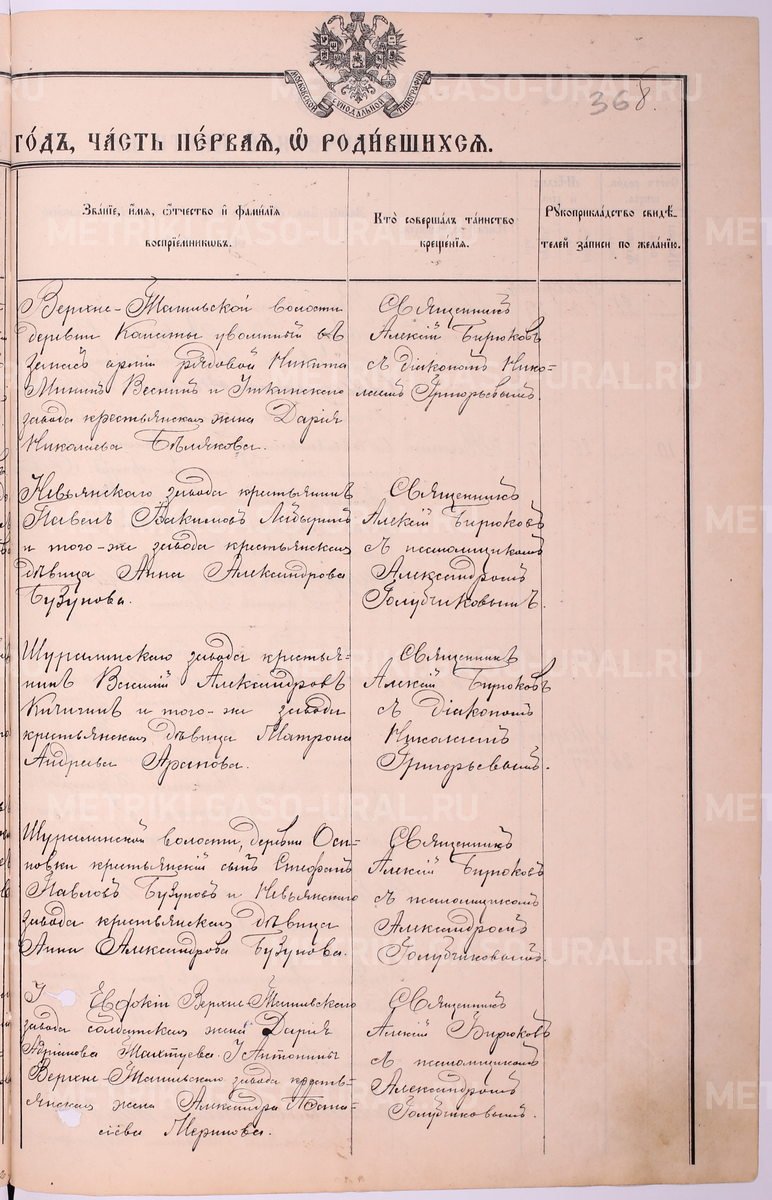 МОСКОВСКОЙ СѴНОДАЛЬНОЙ ТИПОГРАФІИ
368.
ГО́ДЪ, ЧА́СТЬ ПЕ́РВАЯ, Ѽ РОДИ́ВШИХСѦ.
Зва́нїе, и́мѧ, ѻ҆́тчество и҆ фами́лїѧ
воспрїе́мникѡвъ.
Кто̀ соверша́лъ та́инство
креще́нїѧ.
Рꙋкоприкла́дство свидѣ́-
телей за́писи по жела́нїю.
Верхне-Тагильской волости
деревни уволенный въ
запасъ арміи рядовой Никита
Веснин и Уткинскаго
завода крестьянская жена Дарія
Николаева Бѣлякова.
Священникъ
Алексій Бирюковъ
съ діакономъ Нико-
лаемъ Григорьевымъ.
Невьянскаго завода крестьянинъ
Павелъ
и того-же завода крестьянская
дѣвица Анна Александрова
Бузунова.
Священникъ
Алексій Бирюковъ
съ псаломщикомъ
Александромъ
Голубчиковымъ.
Шуралинскаго завода крестья-
нинъ Василій Александровъ
Кичигинъ и того-же завода
крестьянская дѣвица Матрона
Андреева Арапова.
Священникъ
Алексій Бирюковъ
съ Діакономъ
Николаемъ
Григорьевымъ.
Шуралинской волости, деревни Оси-
новки крестьянскій сынъ Стефанъ
Павловъ Бузуновъ и Невьянскаго
завода крестьянская дѣвица
Анна Александрова Бузунова.
Священникъ
Алексій Бирюковъ
съ псаломщикомъ
Александромъ
Голубчиковымъ.
Евдокіи Верхне-Тагильскаго
завода солдатская жена Дарія
Адріанова Антонины
Верхне-Тагильскаго завода кресть-
янская жена Александра
Меринова.
Священникъ
Алексій Бирюковъ
съ псаломщикомъ
Александромъ
Голубчиковымъ.
METRIKI.GASO-URAL.RU